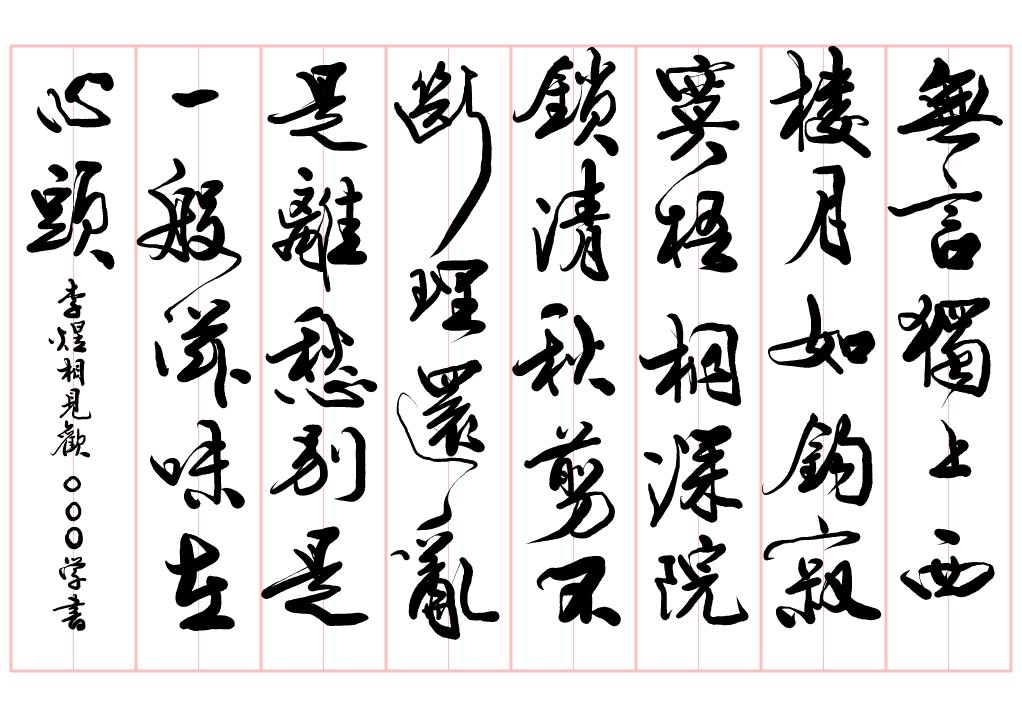 無言獨上西
樓月如鈎寂
寞梧桐深院
鎖清秋剪不
斷理還亂
是離愁別是
一般滋味在
心頭 李煜相見歡 〇〇〇学書